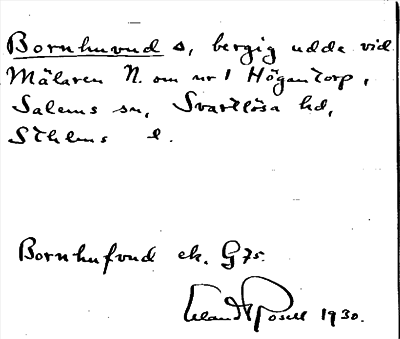 Bornhuvud s, bergig udde vid
Mälaren N. om nr 1 Högantorp,
Salems sn, Svartlösa hd,
Sthlms l.
Bornhufvud ek. G75.
Erland Rosell 1930.